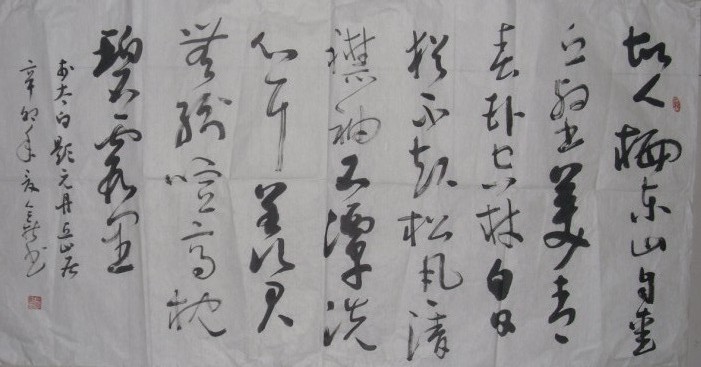 故人栖东山自爱
丘壑美青
春卧空林白日
犹不起松风清
襟袖石潭洗
心耳羡君
无纷喧高枕
碧霞里
太白题元丹丘山居
辛卯年夏
书